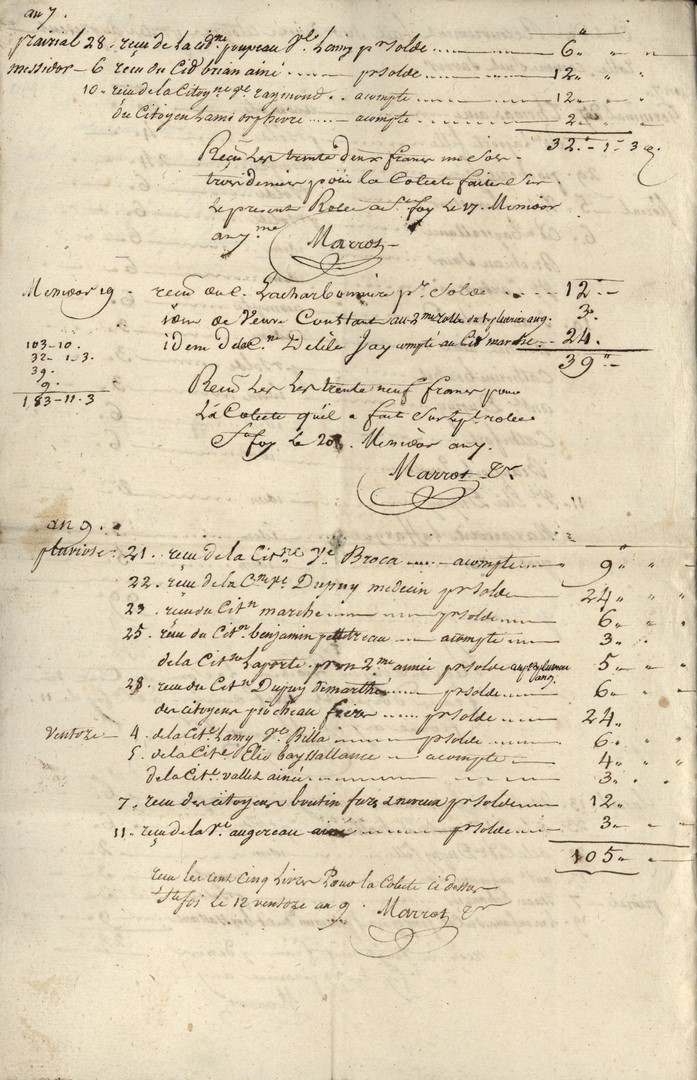 an 7
prairial 28 - recu de La cid.ne joupeau v.e Lamy pr solde 6 " "
messidor - 6 recu du Cid brian ainé pr solde 12 " "
10 - recu de la Citoy.ne v.e raymond acompte 12 "
du Citoyen Lami orphevre acompte 2 "
32 - 1 - 3
Reçu Les trente deux francs un Sol
trois denier pour la Colecte faite Sur
Le present Role a S.te foy Le 17 Messidor
an 7.me
Marrot
Messidor 19 - recu du C. Lacharbonniere pr. Solde 12 -
idem de Veuve Constant au 2.me rolle du an 9. 3.
103 - 10. idem de la C.ne Delile Jay compte au Cid marche 24.
32 - 1 - 3. 39 -
39.
9.
183 - 11 . 3
Recu Les Les trente neuf francs pour
La Colecte qu'il a fait Sur Le pt. rolee
S.te foy Le 20 Messidor an 7.
Marrot
an 9.
pluviose - 21. recu de la Cit.ne v.e Broca acompte 9 " "
22. recu de la C.ne v.e Dupuy medecin pr solde 24 " "
23. recu du Cit.n marche pr solde 6 " "
25. recu du Cit.n benjamin pelletreau acompte 3 "
de la Cit.ne Laporte pr son 2.me année pr solde 5 " "
28. recu du Cit.n Dupuy Demarthe pr solde 6 " "
des citoyens piocheau freres pr solde 24 "
Ventoze - 4. de la Cit.e Lamy v.e Billa pr solde 6 "
5. de la Cit.e Elie bay Vallance acompte 4 " "
de la Cit.e vallet ainée 3 "
7. recu des citoyens boutin furs & neveux pr solde 12 "
11. recu de la v.e augereau pr solde 3 " "
105 "
recu les cent cinq Livres Pour la Colecte ci dessus
S.te foi le 12 ventoze an 9. Marrot